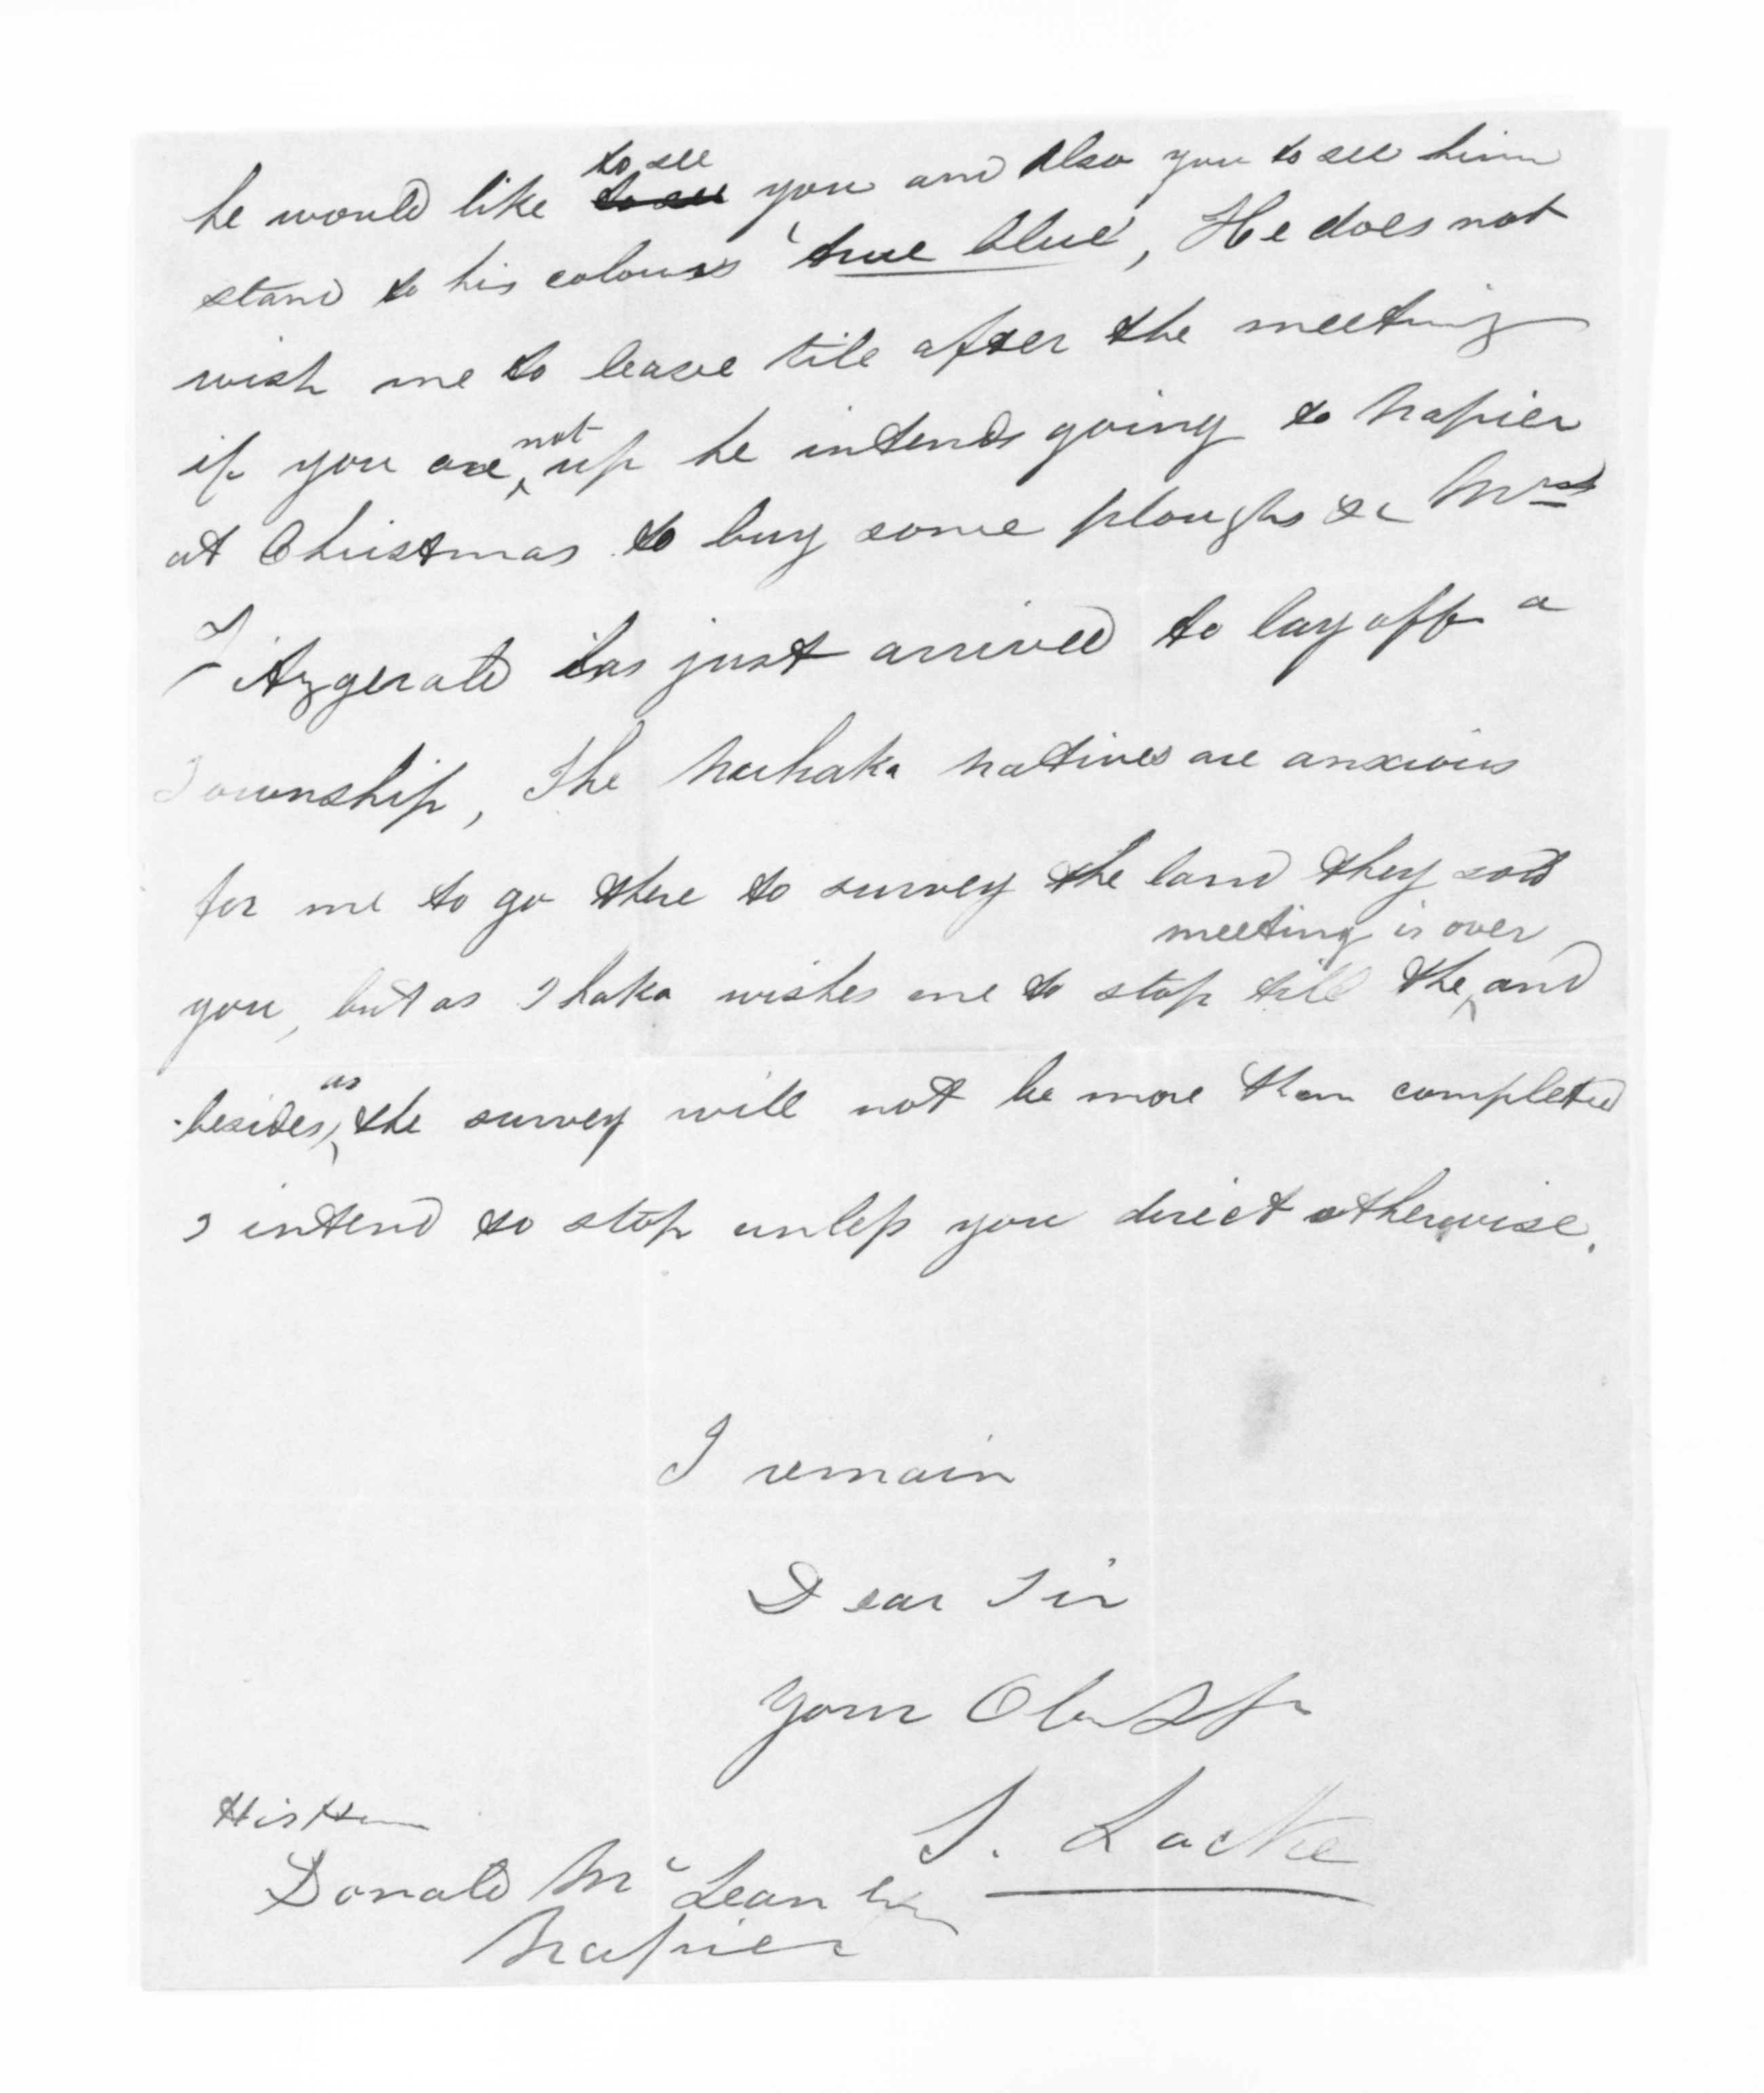 he would like to see you and also you to see him
stand to his colours 'true blue', He does not
wish me to leave till after the meeting
if you are not up he intends going to Napier
at Christmas to buy some ploughs &c Mrs
Fitzgerald has just arrived to lay off a
Township, The Nuhaka natives are anxious
for me to go there to survey the land they sold
you, but as Ihaka wishes me to stop till the meeting is over and
besides, as the survey will not be more than completed
I intend to stop unless you direct otherwise.
I remain
Dear Sir
Your Obt St
S. Locke
His Hon
Donald McLean Esq
Napier